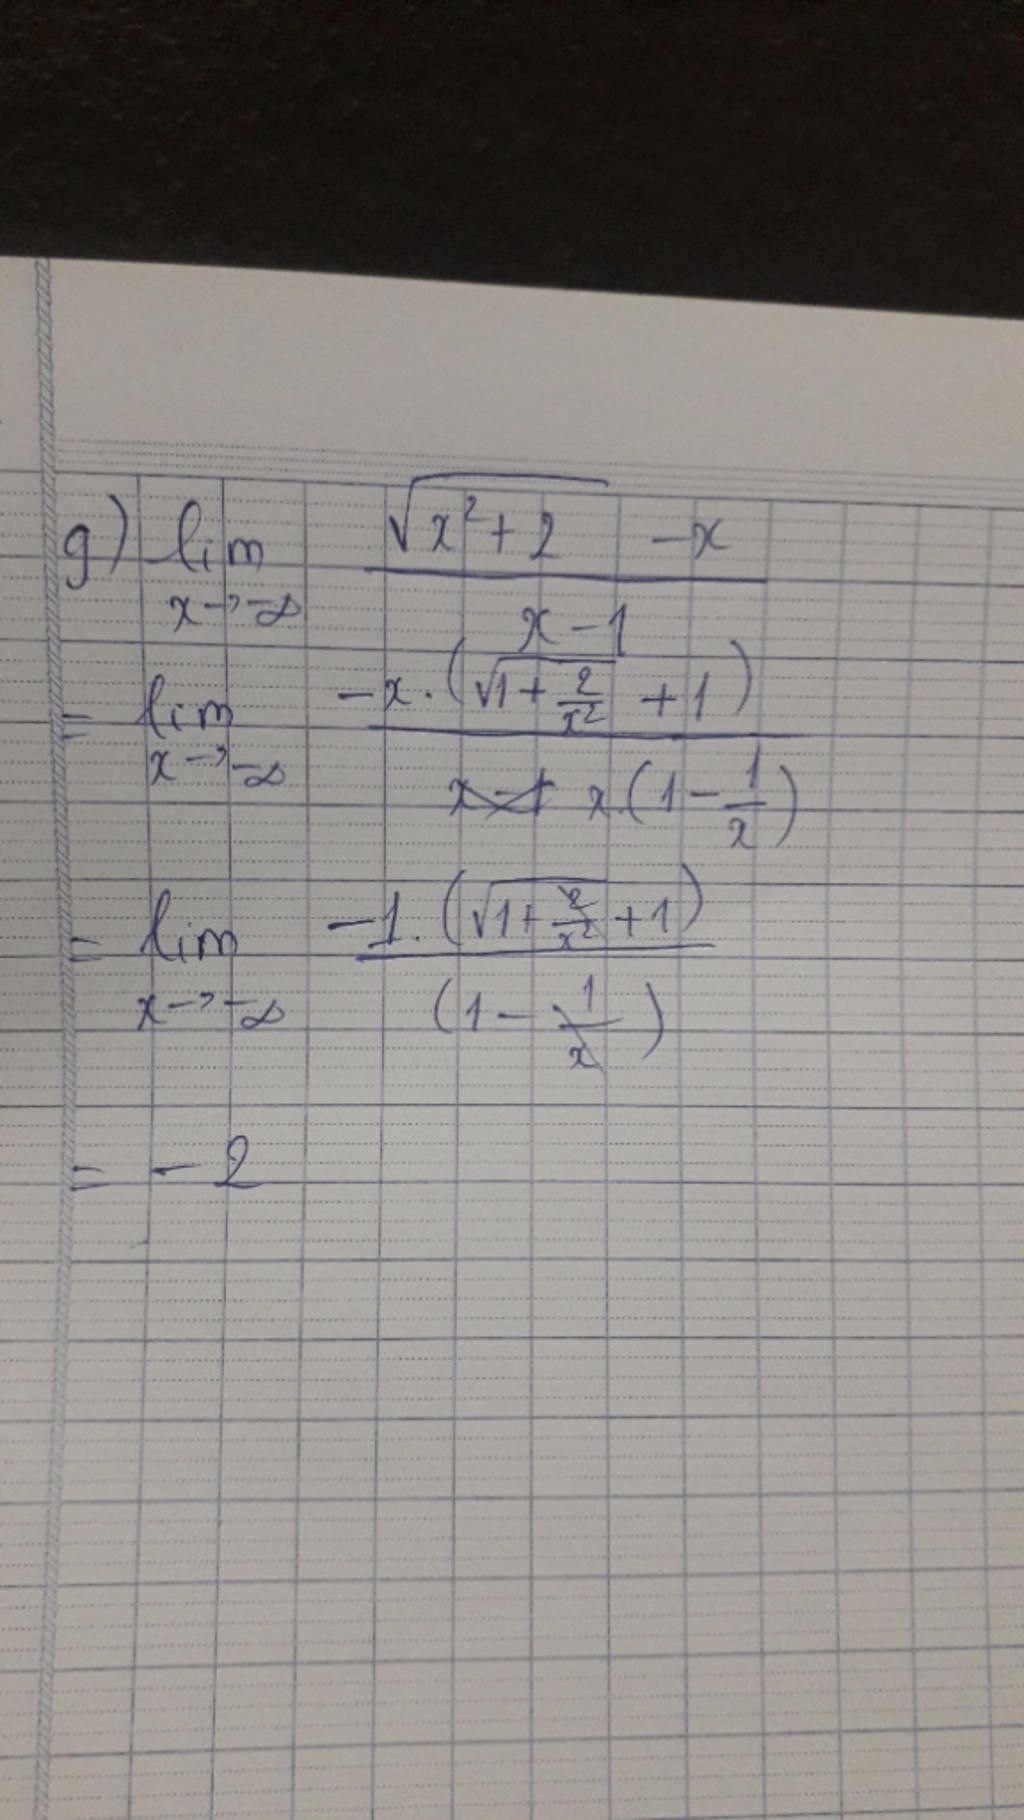 g) lim x→-∞ (√(x²+2) -x)/(x-1)
= lim x→-∞ (-x.(√(1+2/x²) +1))/(x.(1-1/x))
= lim x→-∞ (-1.(√(1+2/x²)+1))/((1-1/x))
= -2